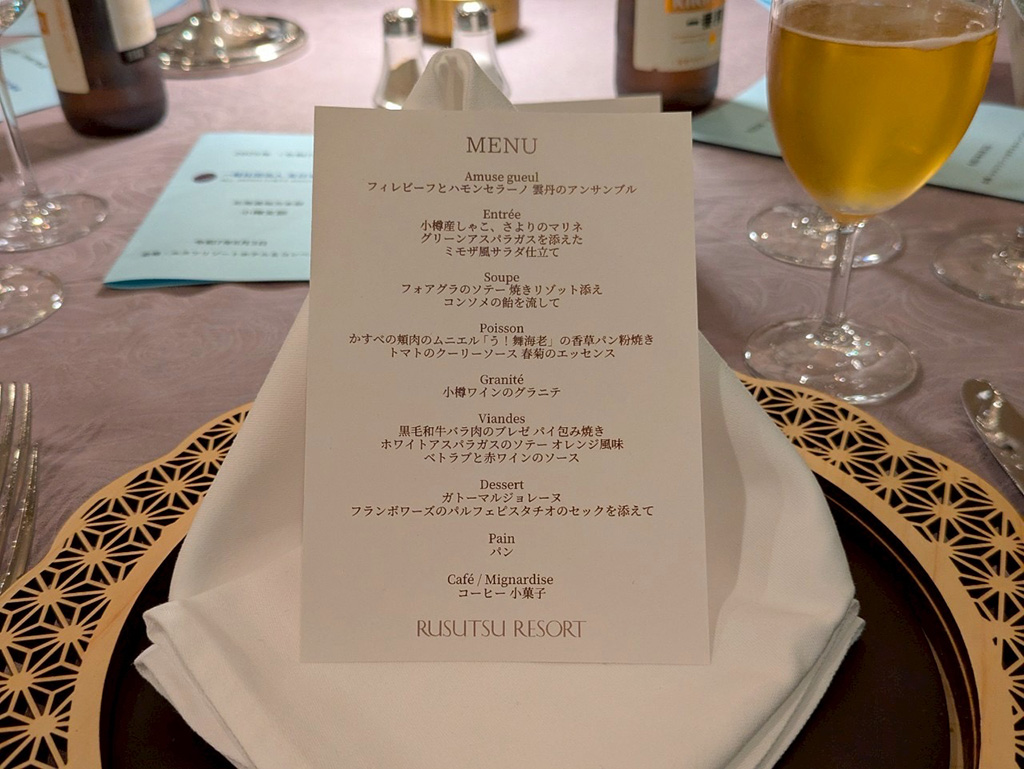 MENU
Amuse gueul
フィレビーフとハモンセラーノ 雲丹のアンサンブル
Entrée
小樽産しゃこ、さよりのマリネ
グリーンアスパラガスを添えた
ミモザ風サラダ仕立て
Soupe
フォアグラのソテー 焼きリゾット添え
コンソメの餡を流して
Poisson
かすべの頬肉のムニエル「う！舞海老」の香草パン粉焼き
トマトのクーリーソース 春菊のエッセンス
Granité
小樽ワインのグラニテ
Viandes
黒毛和牛バラ肉のブレゼ パイ包み焼き
ホワイトアスパラガスのソテー オレンジ風味
ベトラブと赤ワインのソース
Dessert
ガトーマルジョレーヌ
フランボワーズのパルフェピスタチオのセックを添えて
Pain
パン
Café / Mignardise
コーヒー 小菓子
RUSUTSU RESORT